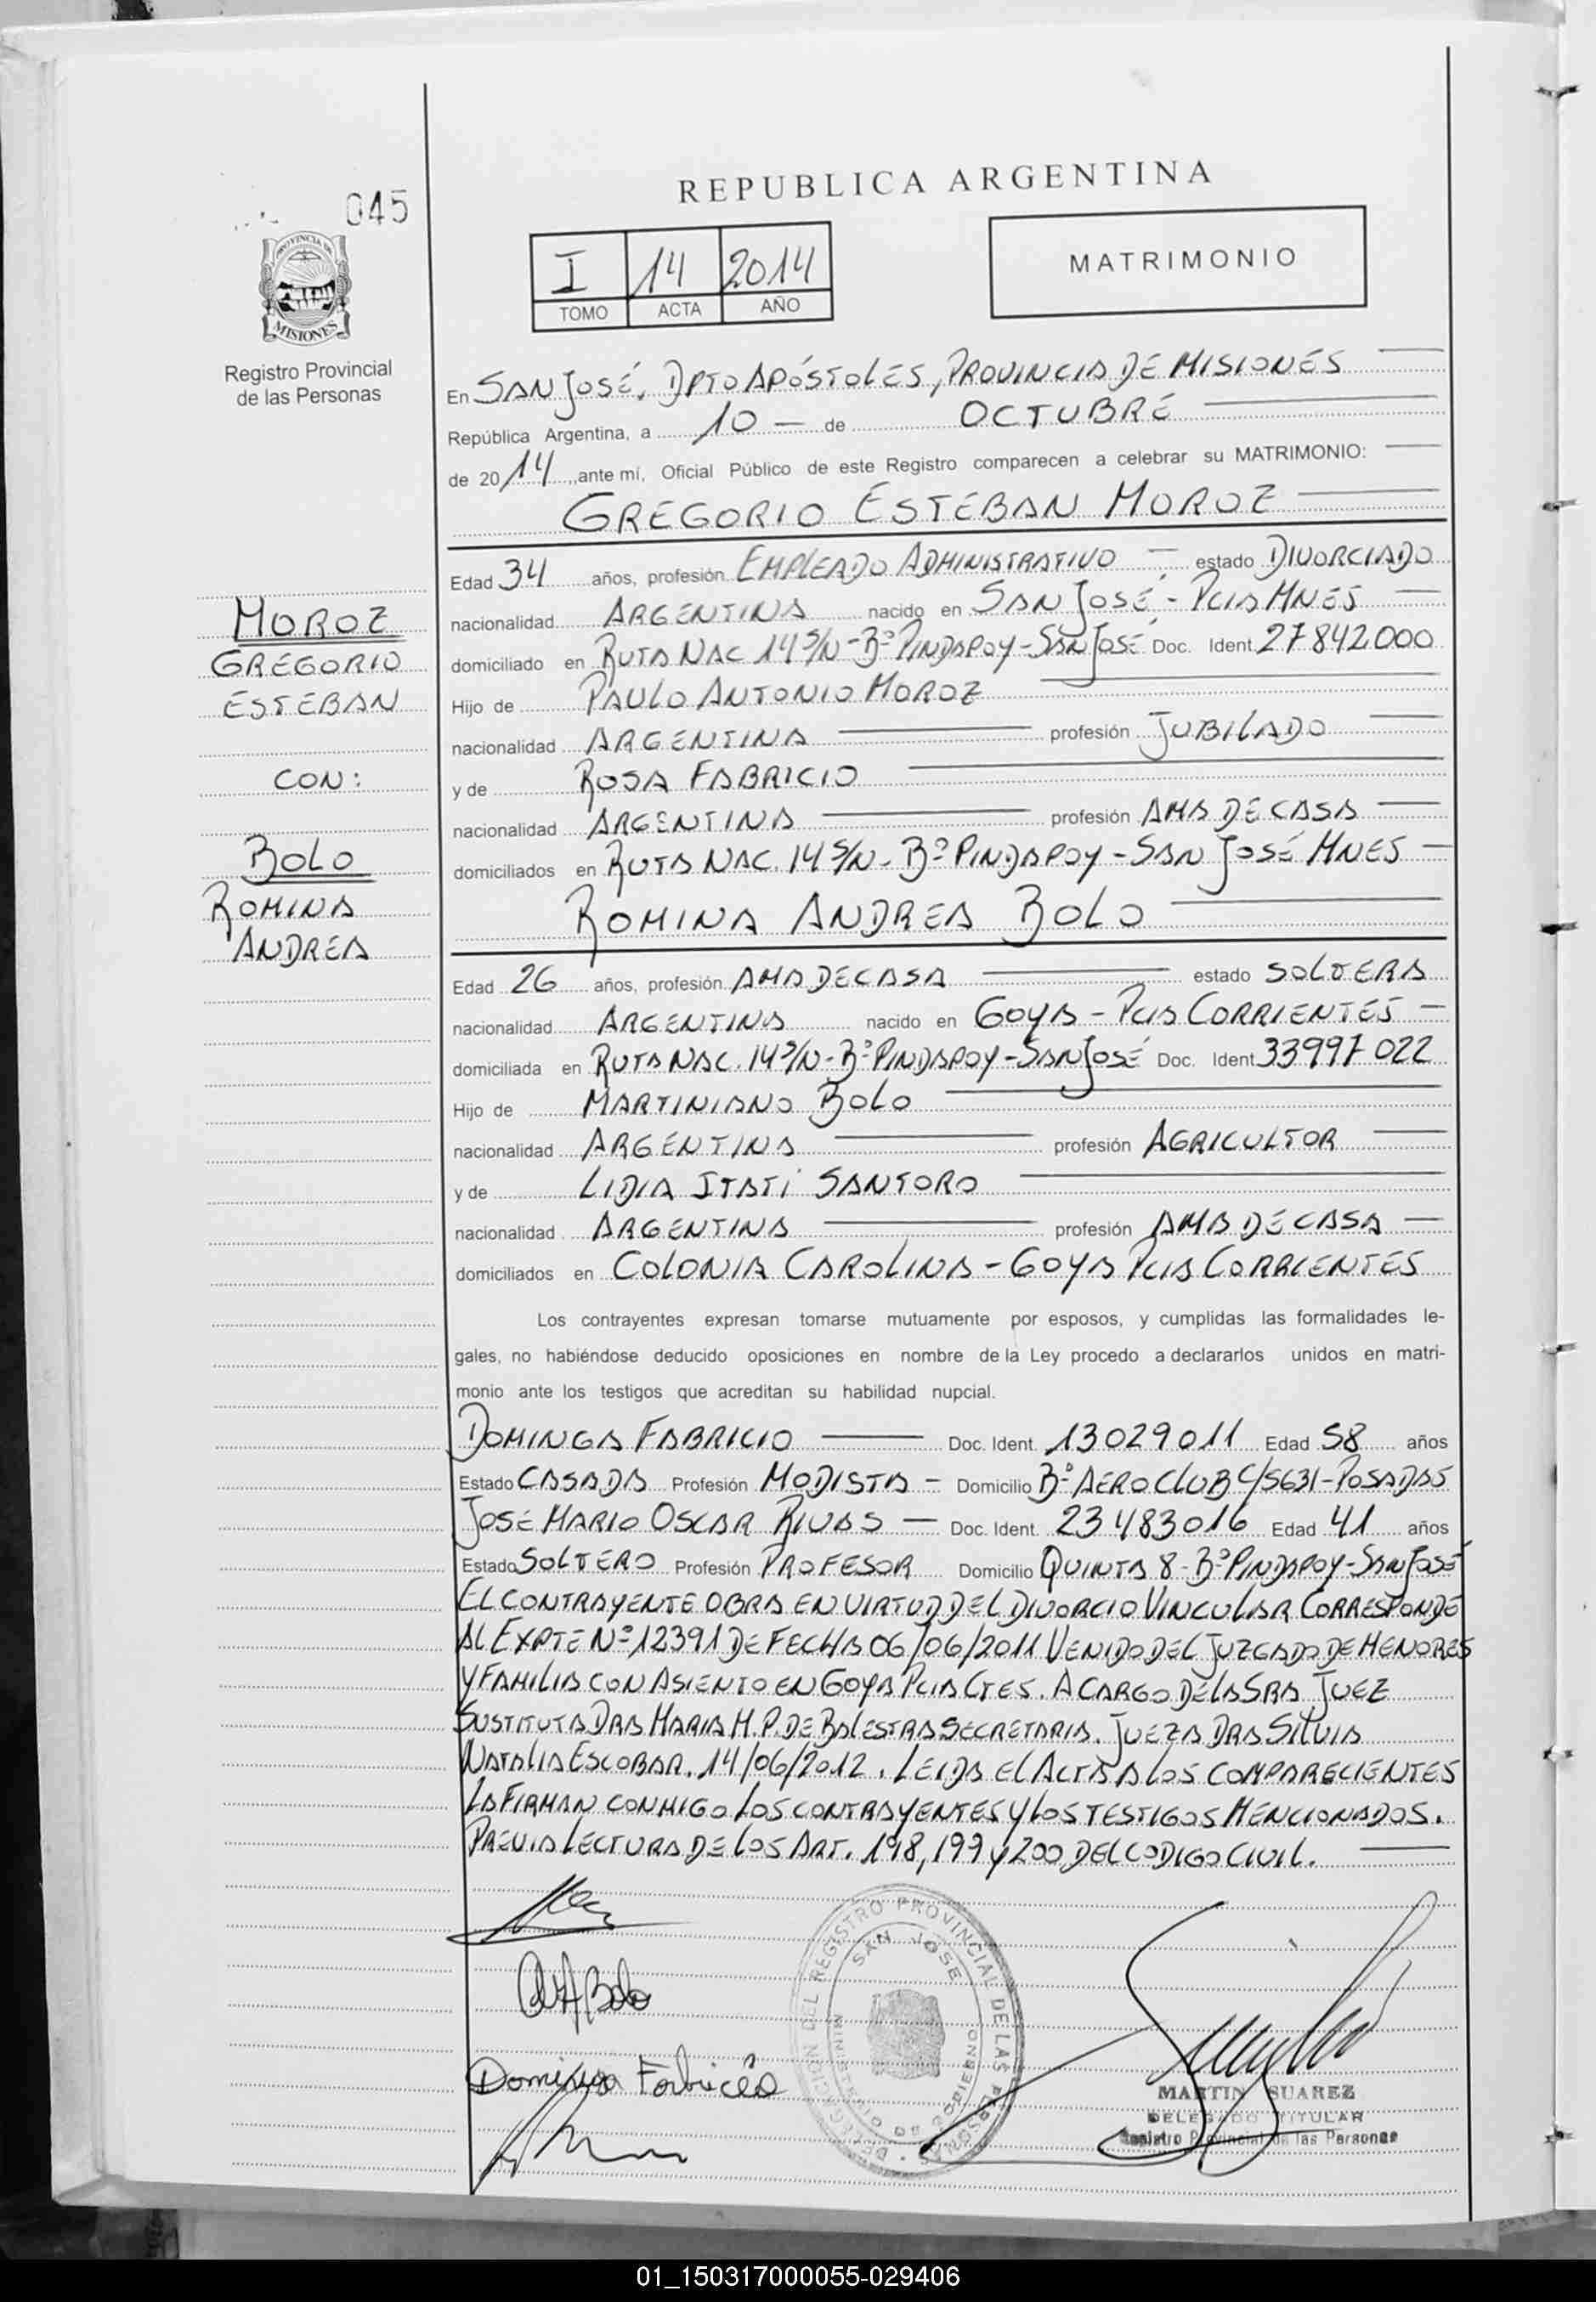 045
PROVINCIA DE
MISIONES
Registro Provincial
de las Personas
REPUBLICA ARGENTINA
I 14 2014
TOMO ACTA AÑO
MATRIMONIO
En SAN JOSÉ, DPTO APÓSTOLES, PROVINCIA DE MISIONES
República Argentina, a 10 — de OCTUBRE
de 2014, ante mí, Oficial Público de este Registro comparecen a celebrar su MATRIMONIO:
GREGORIO ESTEBAN MOROZ
Edad 34 años, profesión EMPLEADO ADMINISTRATIVO — estado DIVORCIADO
nacionalidad ARGENTINA nacido en SAN JOSÉ - PCIA MNES
domiciliado en RUTA NAC 14 S/N - Bº PINDAPOY - SAN JOSÉ Doc. Ident. 27842000
Hijo de PAULO ANTONIO MOROZ
nacionalidad ARGENTINA profesión JUBILADO
y de ROSA FABRICIO
nacionalidad ARGENTINA profesión AMA DE CASA
domiciliados en RUTA NAC. 14 S/N - Bº PINDAPOY - SAN JOSÉ MNES
MOROZ
GREGORIO
ESTEBAN
CON:
BOLO
ROMINA
ANDREA
ROMINA ANDREA BOLO
Edad 26 años, profesión AMA DE CASA estado SOLTERA
nacionalidad ARGENTINA nacido en GOYA - PCIA CORRIENTES
domiciliada en RUTA NAC. 14 S/N - Bº PINDAPOY - SAN JOSÉ Doc. Ident 33997022
Hijo de MARTINIANO BOLO
nacionalidad ARGENTINA profesión AGRICULTOR
y de LIDIA ITATI SANTORO
nacionalidad ARGENTINA profesión AMA DE CASA
domiciliados en COLONIA CAROLINA - GOYA PCIA CORRIENTES
Los contrayentes expresan tomarse mutuamente por esposos, y cumplidas las formalidades le-
gales, no habiéndose deducido oposiciones en nombre de la Ley procedo a declararlos unidos en matri-
monio ante los testigos que acreditan su habilidad nupcial.
DOMINGA FABRICIO Doc. Ident. 13029011 Edad 58 años
Estado CASADA Profesión MODISTA - Domicilio Bº AEROCLUB C/5631 - POSADAS
JOSÉ MARIO OSCAR RIVAS — Doc. Ident. 23483016 Edad 41 años
Estado SOLTERO Profesión PROFESOR Domicilio QUINTA 8 - Bº PINDAPOY - SAN JOSÉ
EL CONTRAYENTE OBRA EN VIRTUD DEL DIVORCIO VINCULAR CORRESPONDE
AL EXPTE Nº 12391 DE FECHA 06/06/2011 VENIDO DEL JUZGADO DE MENORES
Y FAMILIA CON ASIENTO EN GOYA PCIA CTES. A CARGO DE LA SRA JUEZ
SUSTITUTA DRA MARIA M. P. DE BALESTRA SECRETARIA. JUEZA DRA SILVIA
NATALIA ESCOBAR. 14/06/2012. LEIDA EL ACTA A LOS COMPARECIENTES
LA FIRMAN CONMIGO LOS CONTRAYENTES Y LOS TESTIGOS MENCIONADOS.
PREVIA LECTURA DE LOS ART. 198, 199 Y 200 DEL CODIGO CIVIL.
DELEGACION DEL REGISTRO PROVINCIAL DE LAS PERSONAS
SAN JOSE
MINISTERIO DE GOBIERNO
Bolo
Dominga Fabricio
MARTIN SUAREZ
DELEGADO TITULAR
Registro Provincial de las Personas
01_150317000055-029406